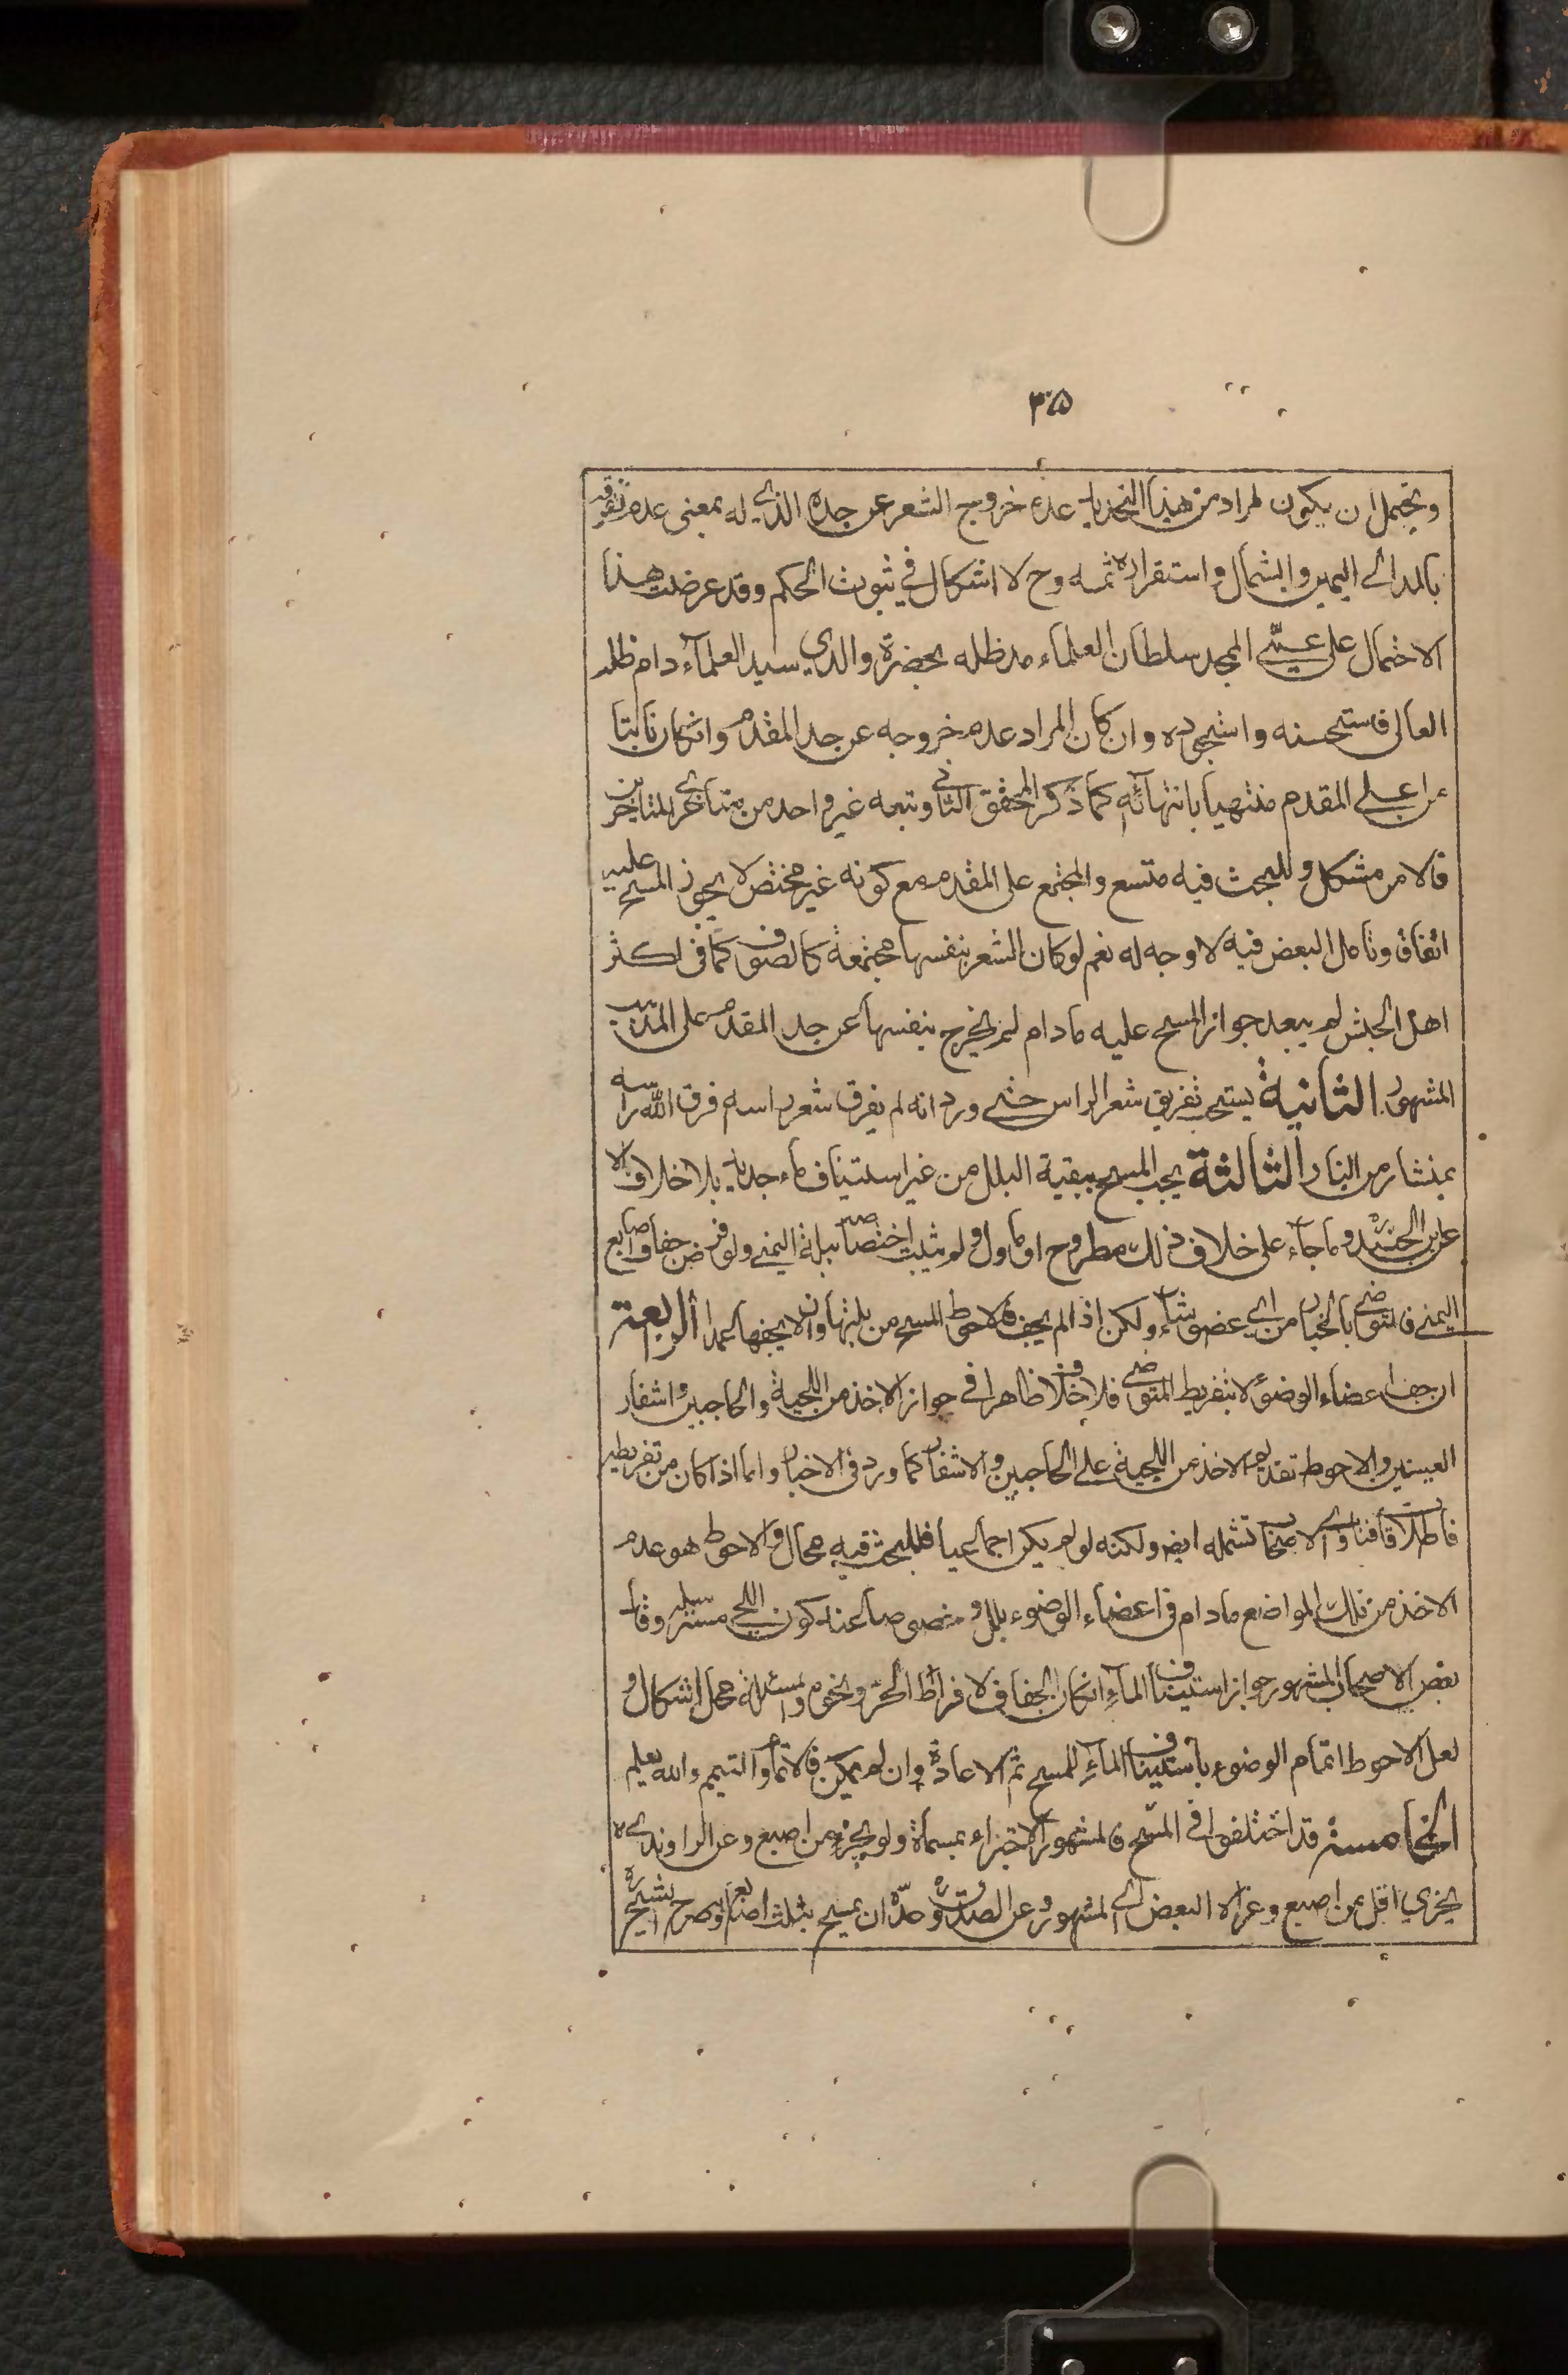 ٣٥
ويحتمل ان يكون المراد من هذا التحديد عدم خروج الشعر عن حده الذي له بمعنى عدم تفرقه
بالمد الى اليمين والشمال واستقراره ثمه وح لا اشكال في ثبوت الحكم وقد عرضت هذا
الاحتمال على عمّي الممجد سلطان العلماء مد ظله بحضرة والدي سيد العلمآء دام ظله
العالى فاستحسنه واستجوده وان كان المراد عدم خروجه عن حد المقدم وانكان نابتا
من اعلى المقدم منتهيا بانتهآئه كما ذكر المحقق الثاني وتبعه غير واحد من متأخرى المتاخرين
فالامر مشكل وللبحث فيه متسع والمجتمع على المقدم مع كونه غير مختص لا يجوز المسح عليه
اتفاقا وتامل البعض فيه لا وجه له نعم لو كان الشعر بنفسها مجتمعة كالصوف كما فى اكثر
اهل الحبش لم يبعد جواز المسح عليه مادام لم يخرج بنفسها عن حد المقدم على المذهب
المشهور الثانية يستحب تفريق شعر الراس حتى ورد انه لم يفرق شعر راسه فرق الله راسه
بمنشار من النار الثالثة يجب المسح ببقية البلل من غير استيناف ماء جديد بلا خلاف الا
عن ابن الجنيد وما جآء على خلاف ذلك مطروح او ماول ولو ثبت اختصاصه ببلة اليمنى ولو فرض جفاف اصابع
اليمنى فالمتوضى بالخيار من اى عضو شاء ولكن اذا لم يجف فالاحوط المسح من بلتها وان لا يجفها عمدا الرابعة
ان جف اعضاء الوضوء لا بتفريط المتوضى فلا خلاف ظاهرا في جواز الاخذ من اللحية والحاجبين واشفار
العينين والاحوط تقديم الاخذ من اللحية على الحاجبين والاشفار كما ورد فى الاخبار واما اذا كان من تفريطه
فاطلاق فتاوى الاصحاب تشمله ايضا ولكنه لو لم يكن اجماعيا فللبحث فيه مجال والاحوط هو عدم
الاخذ من تلك المواضع مادام فى اعضاء الوضوء بلل وخصوصا عند كون اللحى مسترسلة وقال
بعض الاصحاب المشهور جواز استيناف المآء انكان الجفاف لافراط الحرّ ونحوه والمسئلة محل اشكال و
لعل الاحوط اتمام الوضوء باستيناف المآء للمسح ثم الاعادة وان لم يمكن فالاتمام والتيمم والله يعلم
الخامسة قد اختلفوا فى المسح فالمشهور الاجتزاء بمسماة ولو بجزء من اصبع وعن الراوندى لا
يجزي اقل من اصبع وعزاه البعض الى المشهور وعن الصدوق حدّه ان يمسح بثلث اصابع وصرح الشيخ